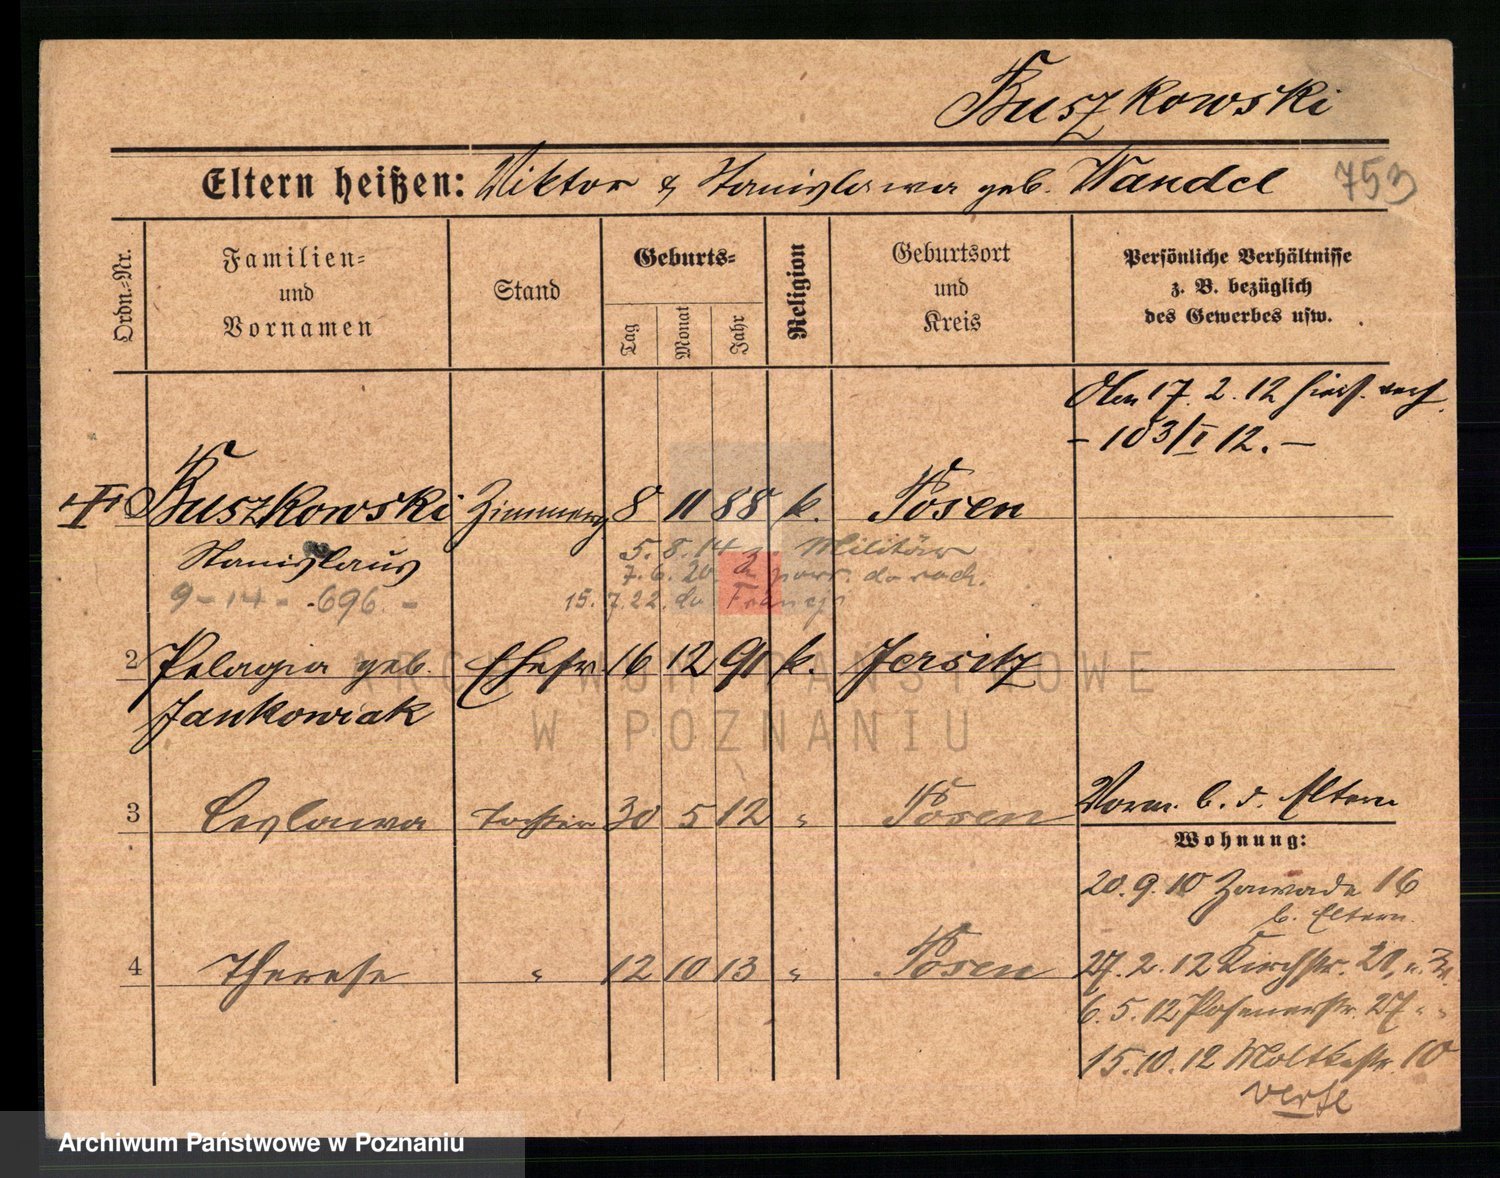 Buszkowski
Eltern heißen: Viktor & Stanislawa geb. Wandel 753
Ordn.=Nr.
Familien=
und
Vornamen
Stand
Geburts=
Tag
Monat
Jahr
Religion
Geburtsort
und
Kreis
Persönliche Verhältnisse
z. B. bezüglich
des Gewerbes usw.
17. 2. 12
- 103/I 12. -
Buszkowski 8 11 88 k. Posen
Stanislaus
5. 8. 14 Militär
7. 6. 20.
9 - 14 - 696. -
15. 7. 22.
2 Pelagia geb. Ehefr. 16 12 91 k. Jersitz
Jankowiak
3 Ceslawa Tochter 30 5 12 " Posen
Vorm. b. d. Eltern
Wohnung:
20. 9. 10 Zawade 16
b. Eltern.
4 Therese " 12 10 13 " Posen
27. 2. 12 Kirchstr. 20
6. 5. 12 Posenerstr. 27 " "
15. 10. 12 Moltkestr. 10
verte
ARCHIWUM PAŃSTWOWE
W POZNANIU
Archiwum Państwowe w Poznaniu